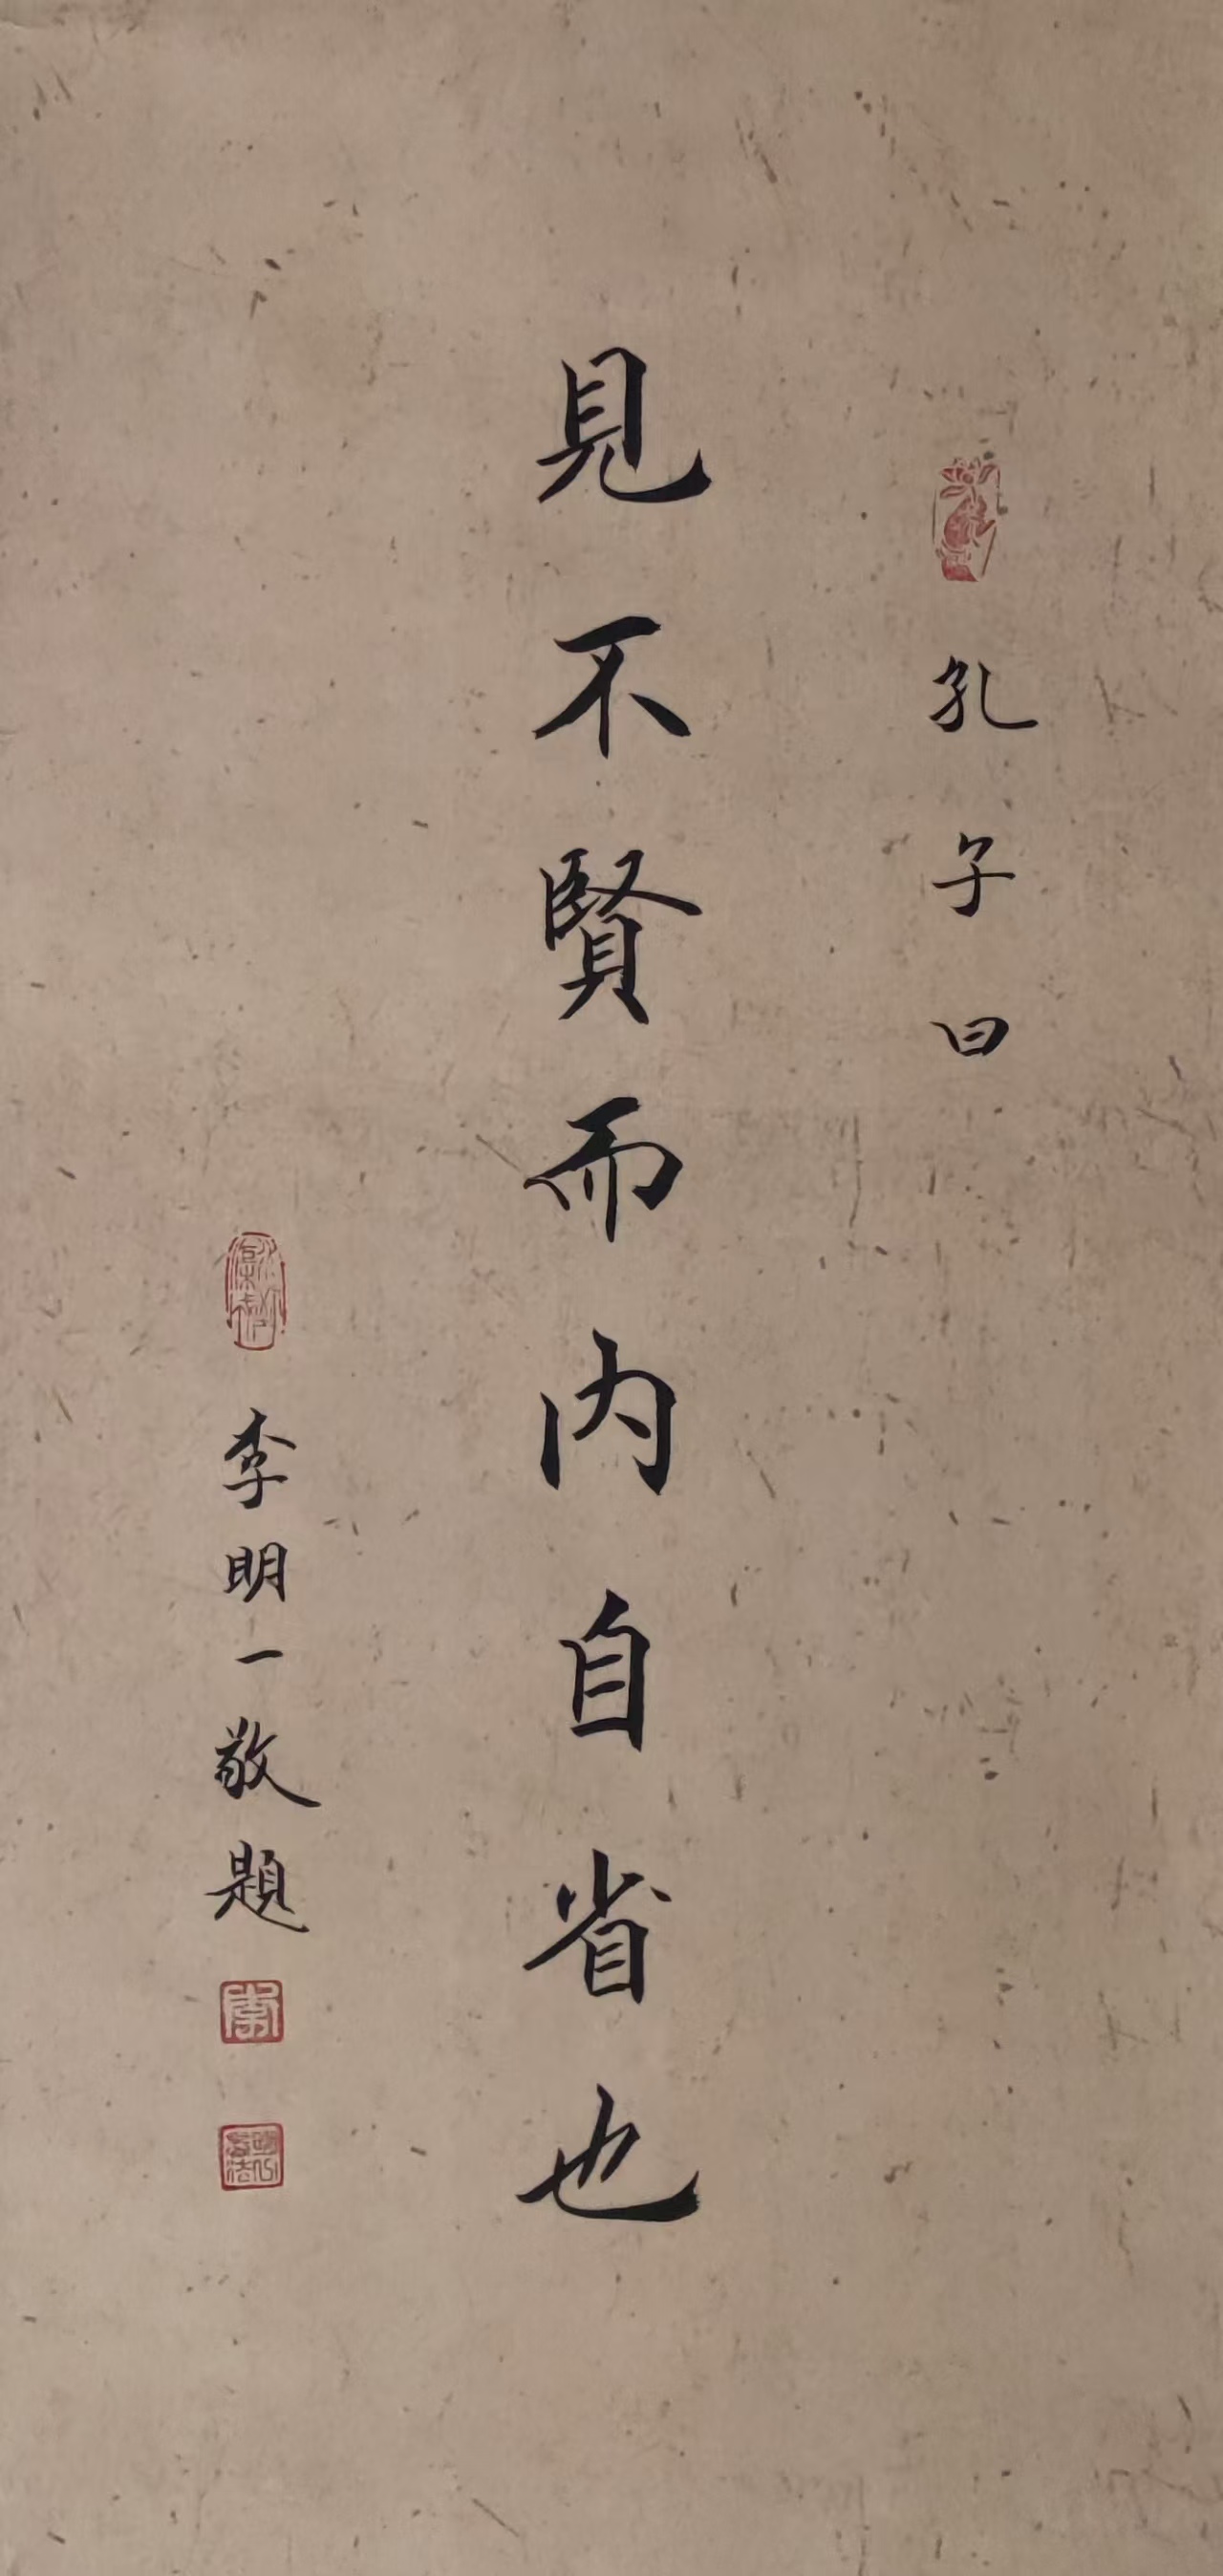 孔子曰
見不賢而内自省也
李明一敬題